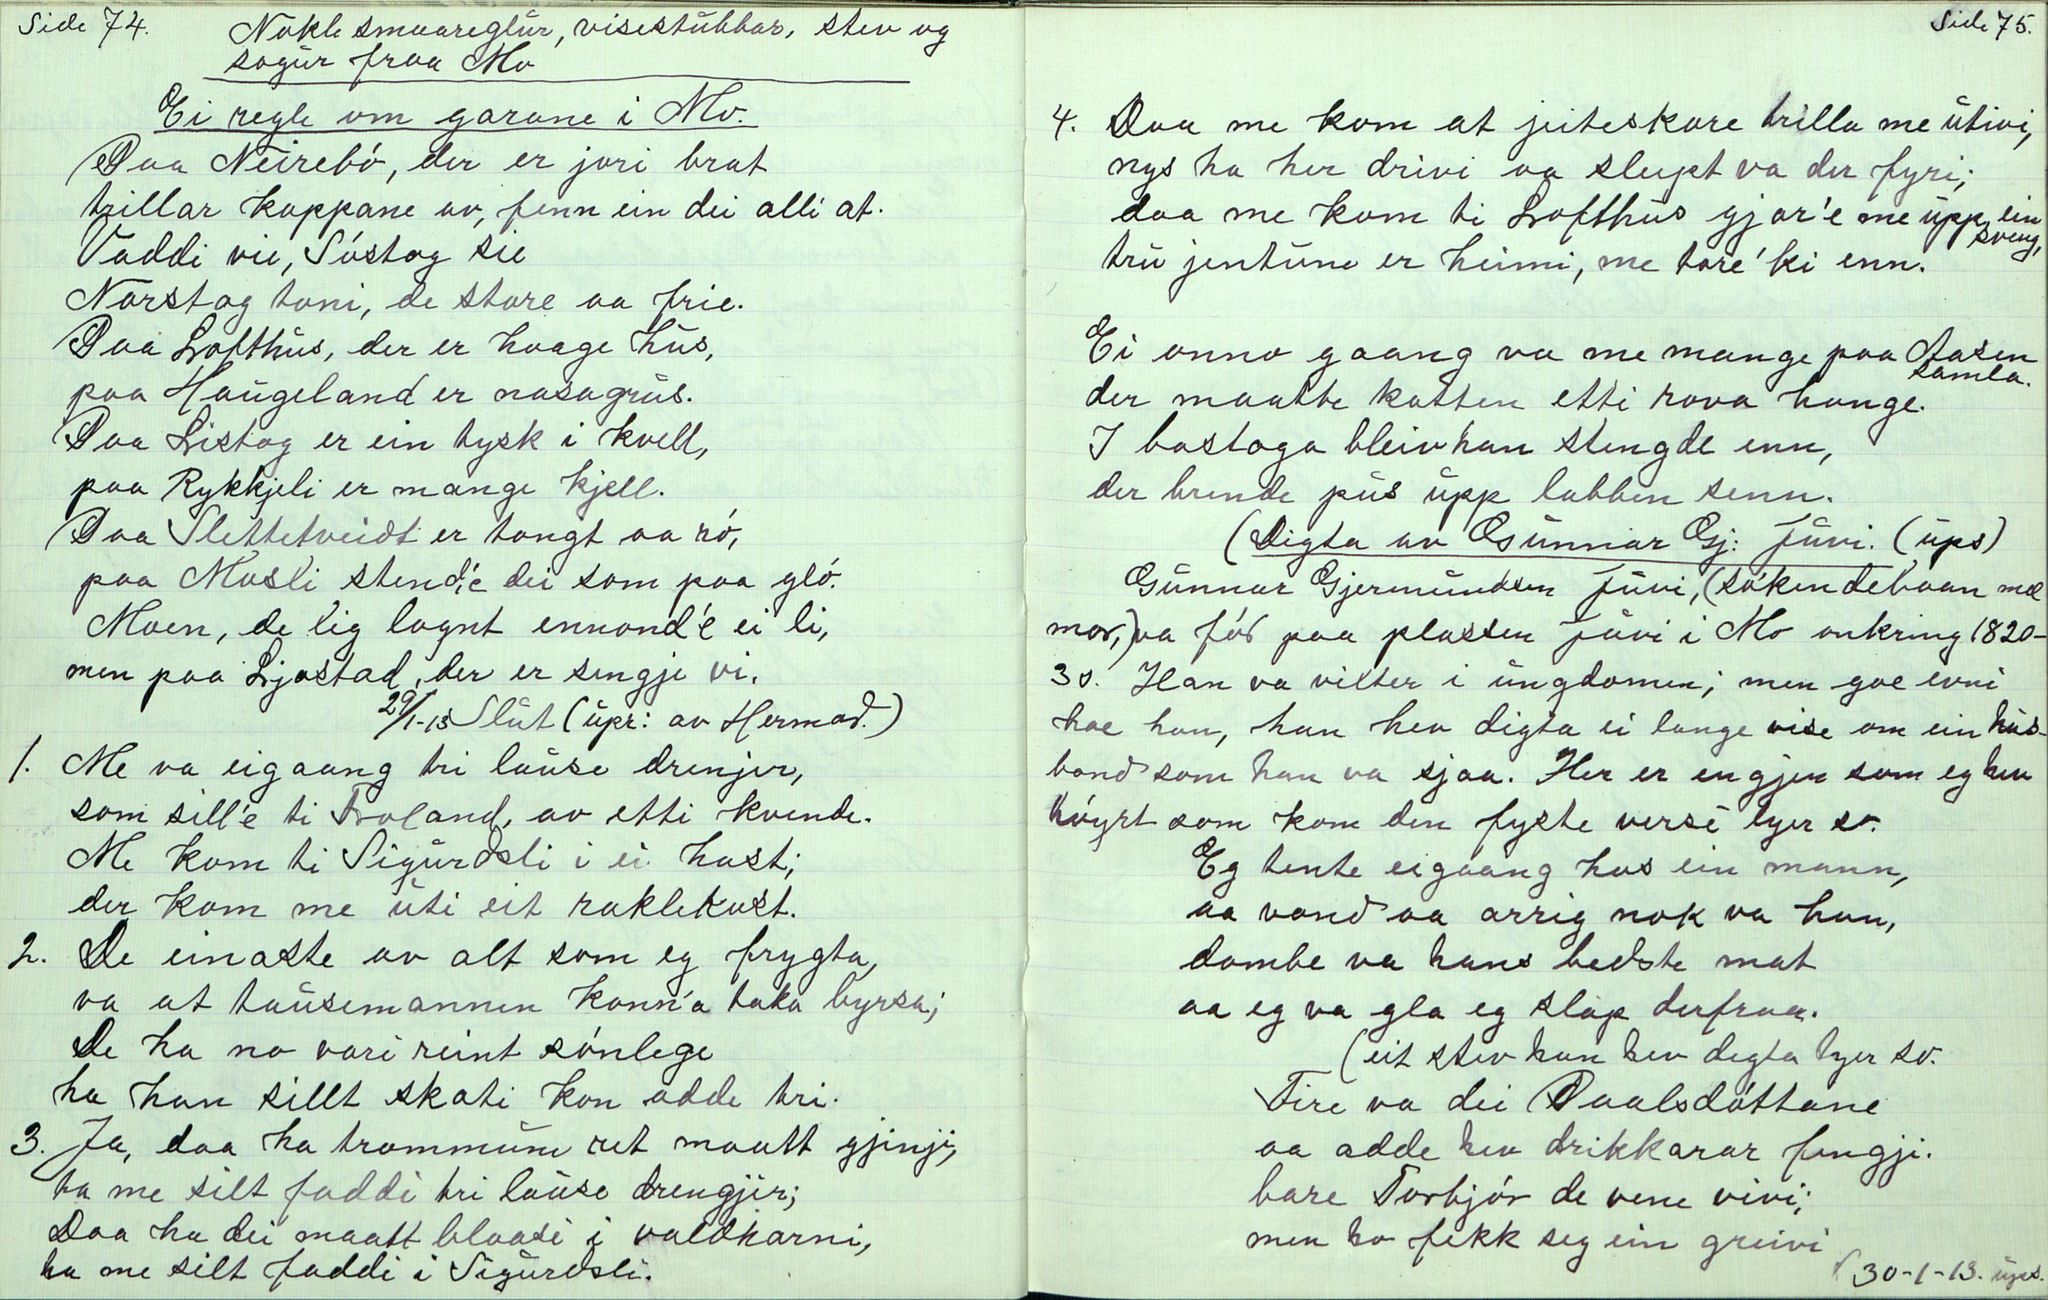 Side 74.
Nokle smaareglur, visestubbar, stev og
sogur fraa Mo
Ei regle om garane i Mo.
Paa Neirebó, der er jori brat
trillar kappane av, fenn ein dei alli at.
Vaddi vie, Sóstog sie
Norstog toni, de store aa frie.
Paa Lofthus, der er haage hus,
paa Haugeland er nasagrus.
Paa Listog er ein tysk i kvell,
paa Rykkjeli er mange kjell.
Paa Slettetveidt er tongt aa ró,
paa Mosli stend'e dei som paa gló.
Moen, de lig lognt ennond'e ei li,
men paa Ljostad, der er sengje vi.
29/1-13 Slut (upr: av Hermod.)
1. Me va eigaang tri lause drenjer,
som sill'e ti Troland, av etti kvende.
Me kom ti Sigurdsli i ei hast;
der kom me uti eit raklekast.
2. De einaste av alt som eg frygta,
va at tausemannen konn'a taka byrsa;
De ha no vori reint sónlege
ha han sillt skoti kon adde tri.
3. Ja, daa ha trommune ret maatt gjinji,
ha me silt faddi tri lause drengjir;
Daa ha dei maatt blaasi i valdharni,
ha me silt faddi i Sigurdsli.
Side 75.
4. Daa me kom at jeiteskare trilla me utivi,
nys ha her drivi aa slept va der fyri;
daa me kom ti Lofthus gjor'e me upp ein sveng,
tru jentune er heimi, me tore'ki enn.
Ei onno gaang va me mange paa Aasen samla.
der maatte katten etti rova hange.
I bastoga bleiv han stengde enn,
der brende pus upp labben senn.
(Digta av Gunnar Gj: Juvi. (ups)
Gunnar Gjermundsen Juvi, (sókendebaan med
mor,) va fód paa plassen Juvi i Mo omkring 1820-
30. Han va vilter i ungdomen; men goe evni
hae han, han hev digta ei lange vise om ein hus-
bond som han va sjaa. Her er en gjen som eg hev
hóyrt som kom den fyste versi lyer so.
Eg tente eigaang hos ein mann,
aa vond aa arrig nok va han,
dombe va hans bedste mat
aa eg va gla eg slap derfraa.
(eit stev han hev degta lyer so.
Fire va dei Paalsdóttane
aa adde hev drikkarar fengji.
bare Torbjór de vene vivi;
men ho fekk seg ein greivi
30-1-13. ups.